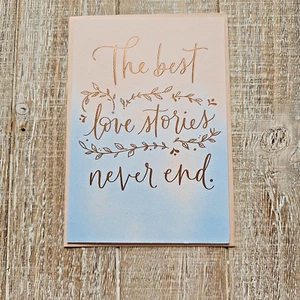 The best
love stories
never end.